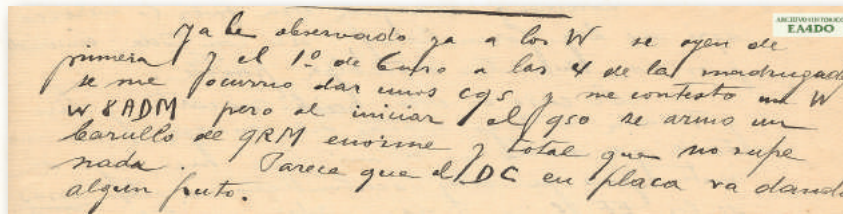 ARCHIVO HISTORICO
EA4DO
ya he observado ya a los W se oyen de
primera y el 1º de Enero a las 4 de la madrugada
se me ocurrio dar unos cqs y me contesto un W
W8ADM pero al iniciar el qso se armo un
barullo de QRM enorme y total que no supe
nada. Parece que el DC en placa va dando
algun fruto.